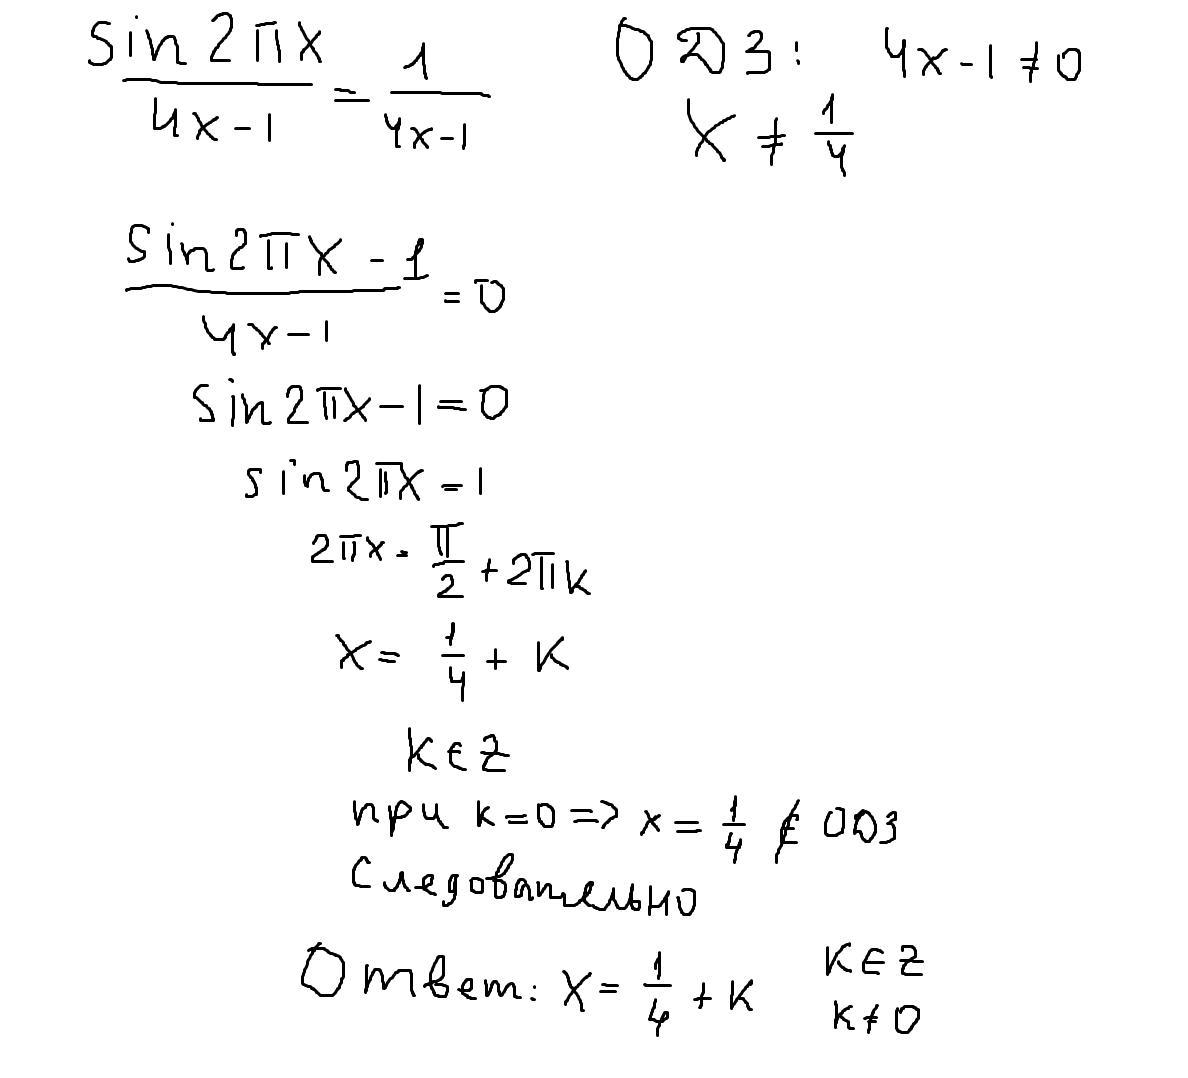 sin2πx/4x-1 = 1/4x-1 ОДЗ: 4x-1≠0
x ≠ 1/4
sin2πx-1/4x-1 = 0
sin2πx-1=0
sin2πx=1
2πx = π/2 + 2πk
x = 1/4 + k
k∈Z
при k=0 => x = 1/4 ∉ ОДЗ
Следовательно
Ответ: x = 1/4 + k k∈Z
k≠0